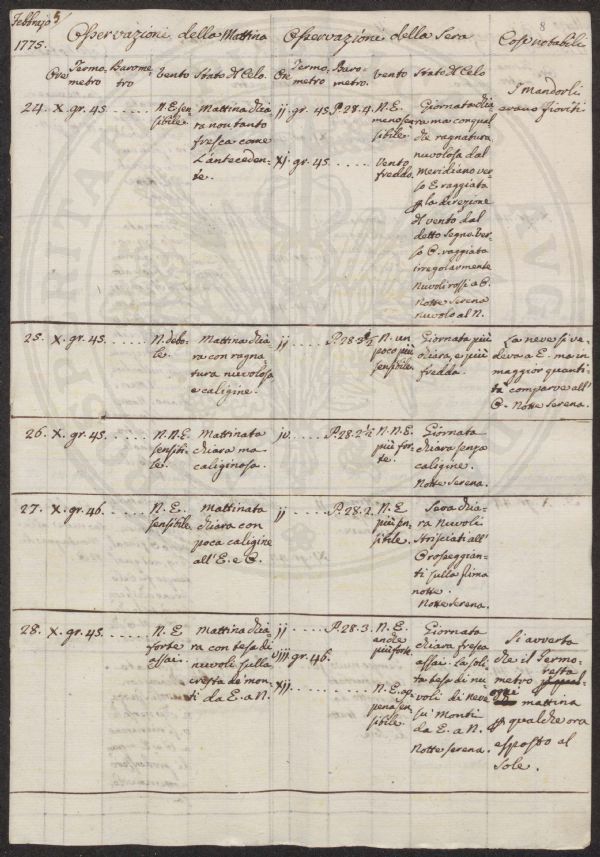 Febbrajo
1775.
Osservazioni della Mattina
Osservazioni della Sera
8
Cose notabili
Ore
Termo-
metro
Barome-
tro
Vento
Stato d Celo
Ore
Termo-
metro
Baro-
metro
vento
Stato d Celo
24. X. gr. 45. . . . . .
N. E sen
sibile.
Mattina chia
ra non tanto
fresca come
l'anteceden-
te.
jj. gr. 45. P. 28. 4.
N. E.
meno sen
sibile.
xj. gr. 45. . . . . .
Vento
freddo.
Giornata chia
ra ma con qual
che ragnatura
nuvolosa dal
meridiano ver-
so E raggiata
la direzione
d vento dal
detto segno ver-
so O. raggiata
irregolarmente
Nuvoli rossi a O.
Notte Serena
nuvolo al N.
I Mandorli
erano fioriti
25. X. gr. 45. . . . . .
N. debo-
le.
Mattina chia-
ra con ragna
tura nuvolosa
e caligine.
jj. . . . . P. 28. 3 1/2
N. un
poco più
sensibile.
Giornata più
chiara, e più
fredda.
La neve si ve-
deva a E. ma in
maggior quanti-
tà comparve all'
O. Notte Serena.
26. X. gr. 45. . . . . .
N. N. E
sensibi-
le.
Mattinata
chiara ma
caliginosa.
jv. . . . . P. 28. 2 1/2
N. N. E.
più for-
te.
Giornata
chiara senza
caligine.
Notte Serena.
27. X. gr. 46. . . . . .
N. E.
sensibile
Mattinata
chiara con
poca caligine
all'E. e O.
jj. . . . . P. 28. 2.
N. E
più sen
sibile.
Sera chia-
ra Nuvoli
strisciati all'
O rosseggian-
ti sulla prima
notte.
Notte Serena.
28. X. gr. 45. . . . . .
N. E
forte
assai.
Mattina chia-
ra con tesa di
nuvoli sulla
cresta de' mon-
ti da E. a N.
jj. . . . . P. 28. 3.
N. E.
anche
più forte
viij gr. 46.
xij. . . . . .
N. E. ap
pena sen
sibile.
Giornata
chiara fresca
assai. La soli-
ta tesa di nu-
voli di neve
su' Monti
da E. a N.
Notte Serena.
Si avverta
che il Termo-
metro resta
ogni mattina
qualche ora
esposto al
Sole.